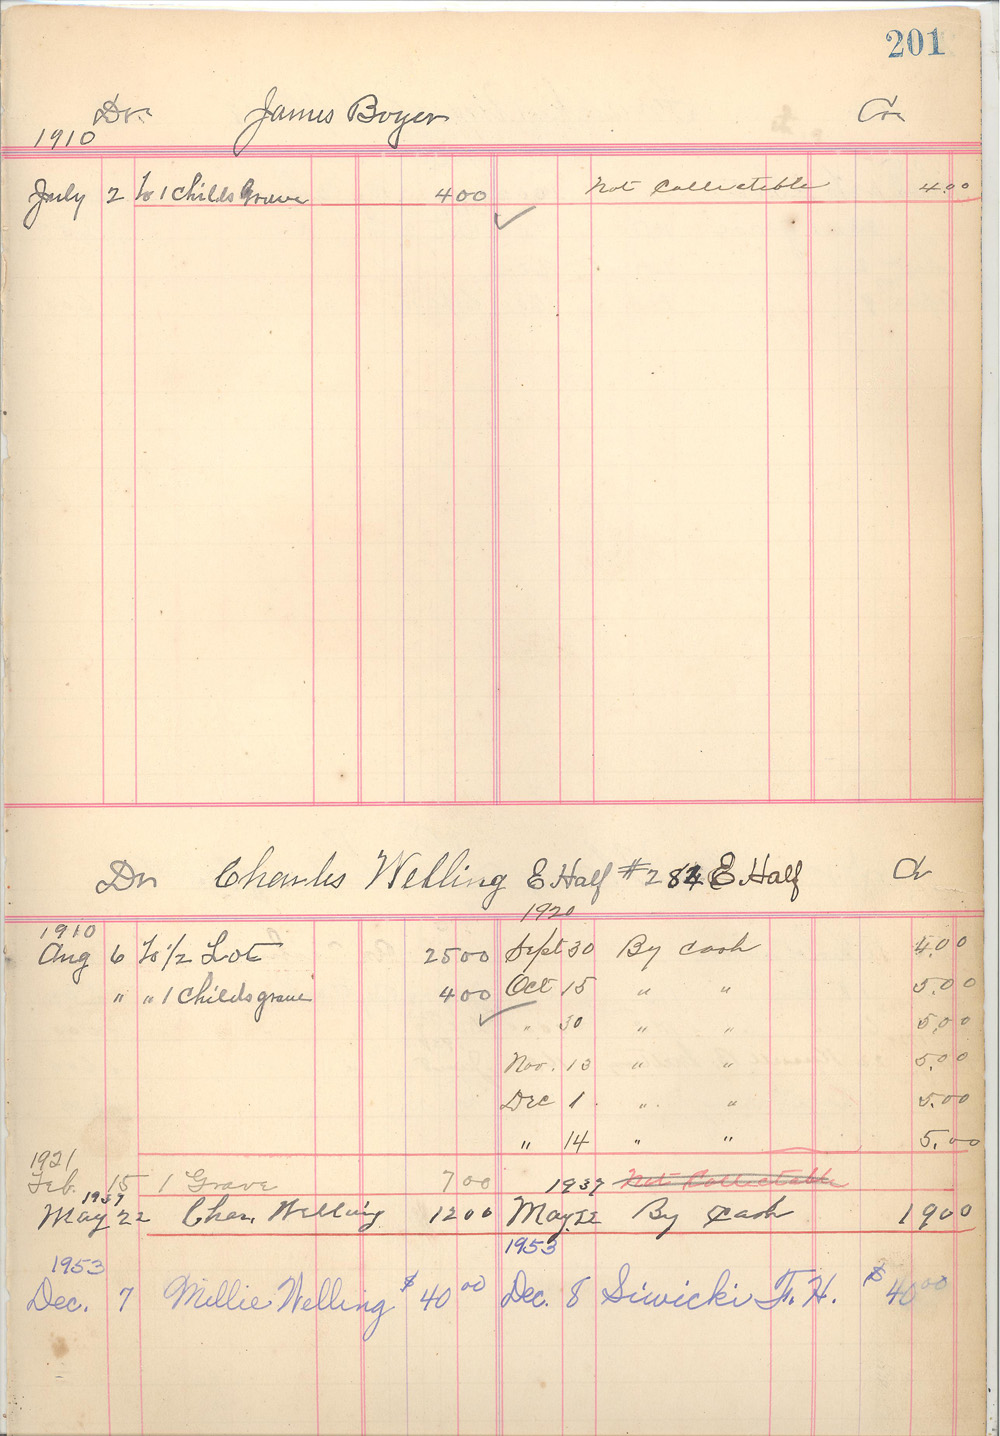 201
Dr. James Boyer Cr.
1910
July 2 To 1 Childs Grave 4 00 Not Collectable 4.00
Dr Charles Welling E Half # 284 E. Half Cr
1920
1910
Aug 6 To 1/2 Lot 25 00 Sept 30 By Cash 4.00
" " 1 Childs grave 4 00 Oct 15 " " 5.00
" 30 " " 5.00
Nov. 13 " " 5.00
Dec 1. " " 5.00
" 14 " " 5.00
1921
Feb. 15 1 Grave 7 00 1937 Not Collectable
1937
May 22 Chas. Welling 12 00 May 22 By Cash 19 00
1953 1953
Dec. 7 Millie Welling $40 00 Dec. 8 Siwicki F. H. $40 00